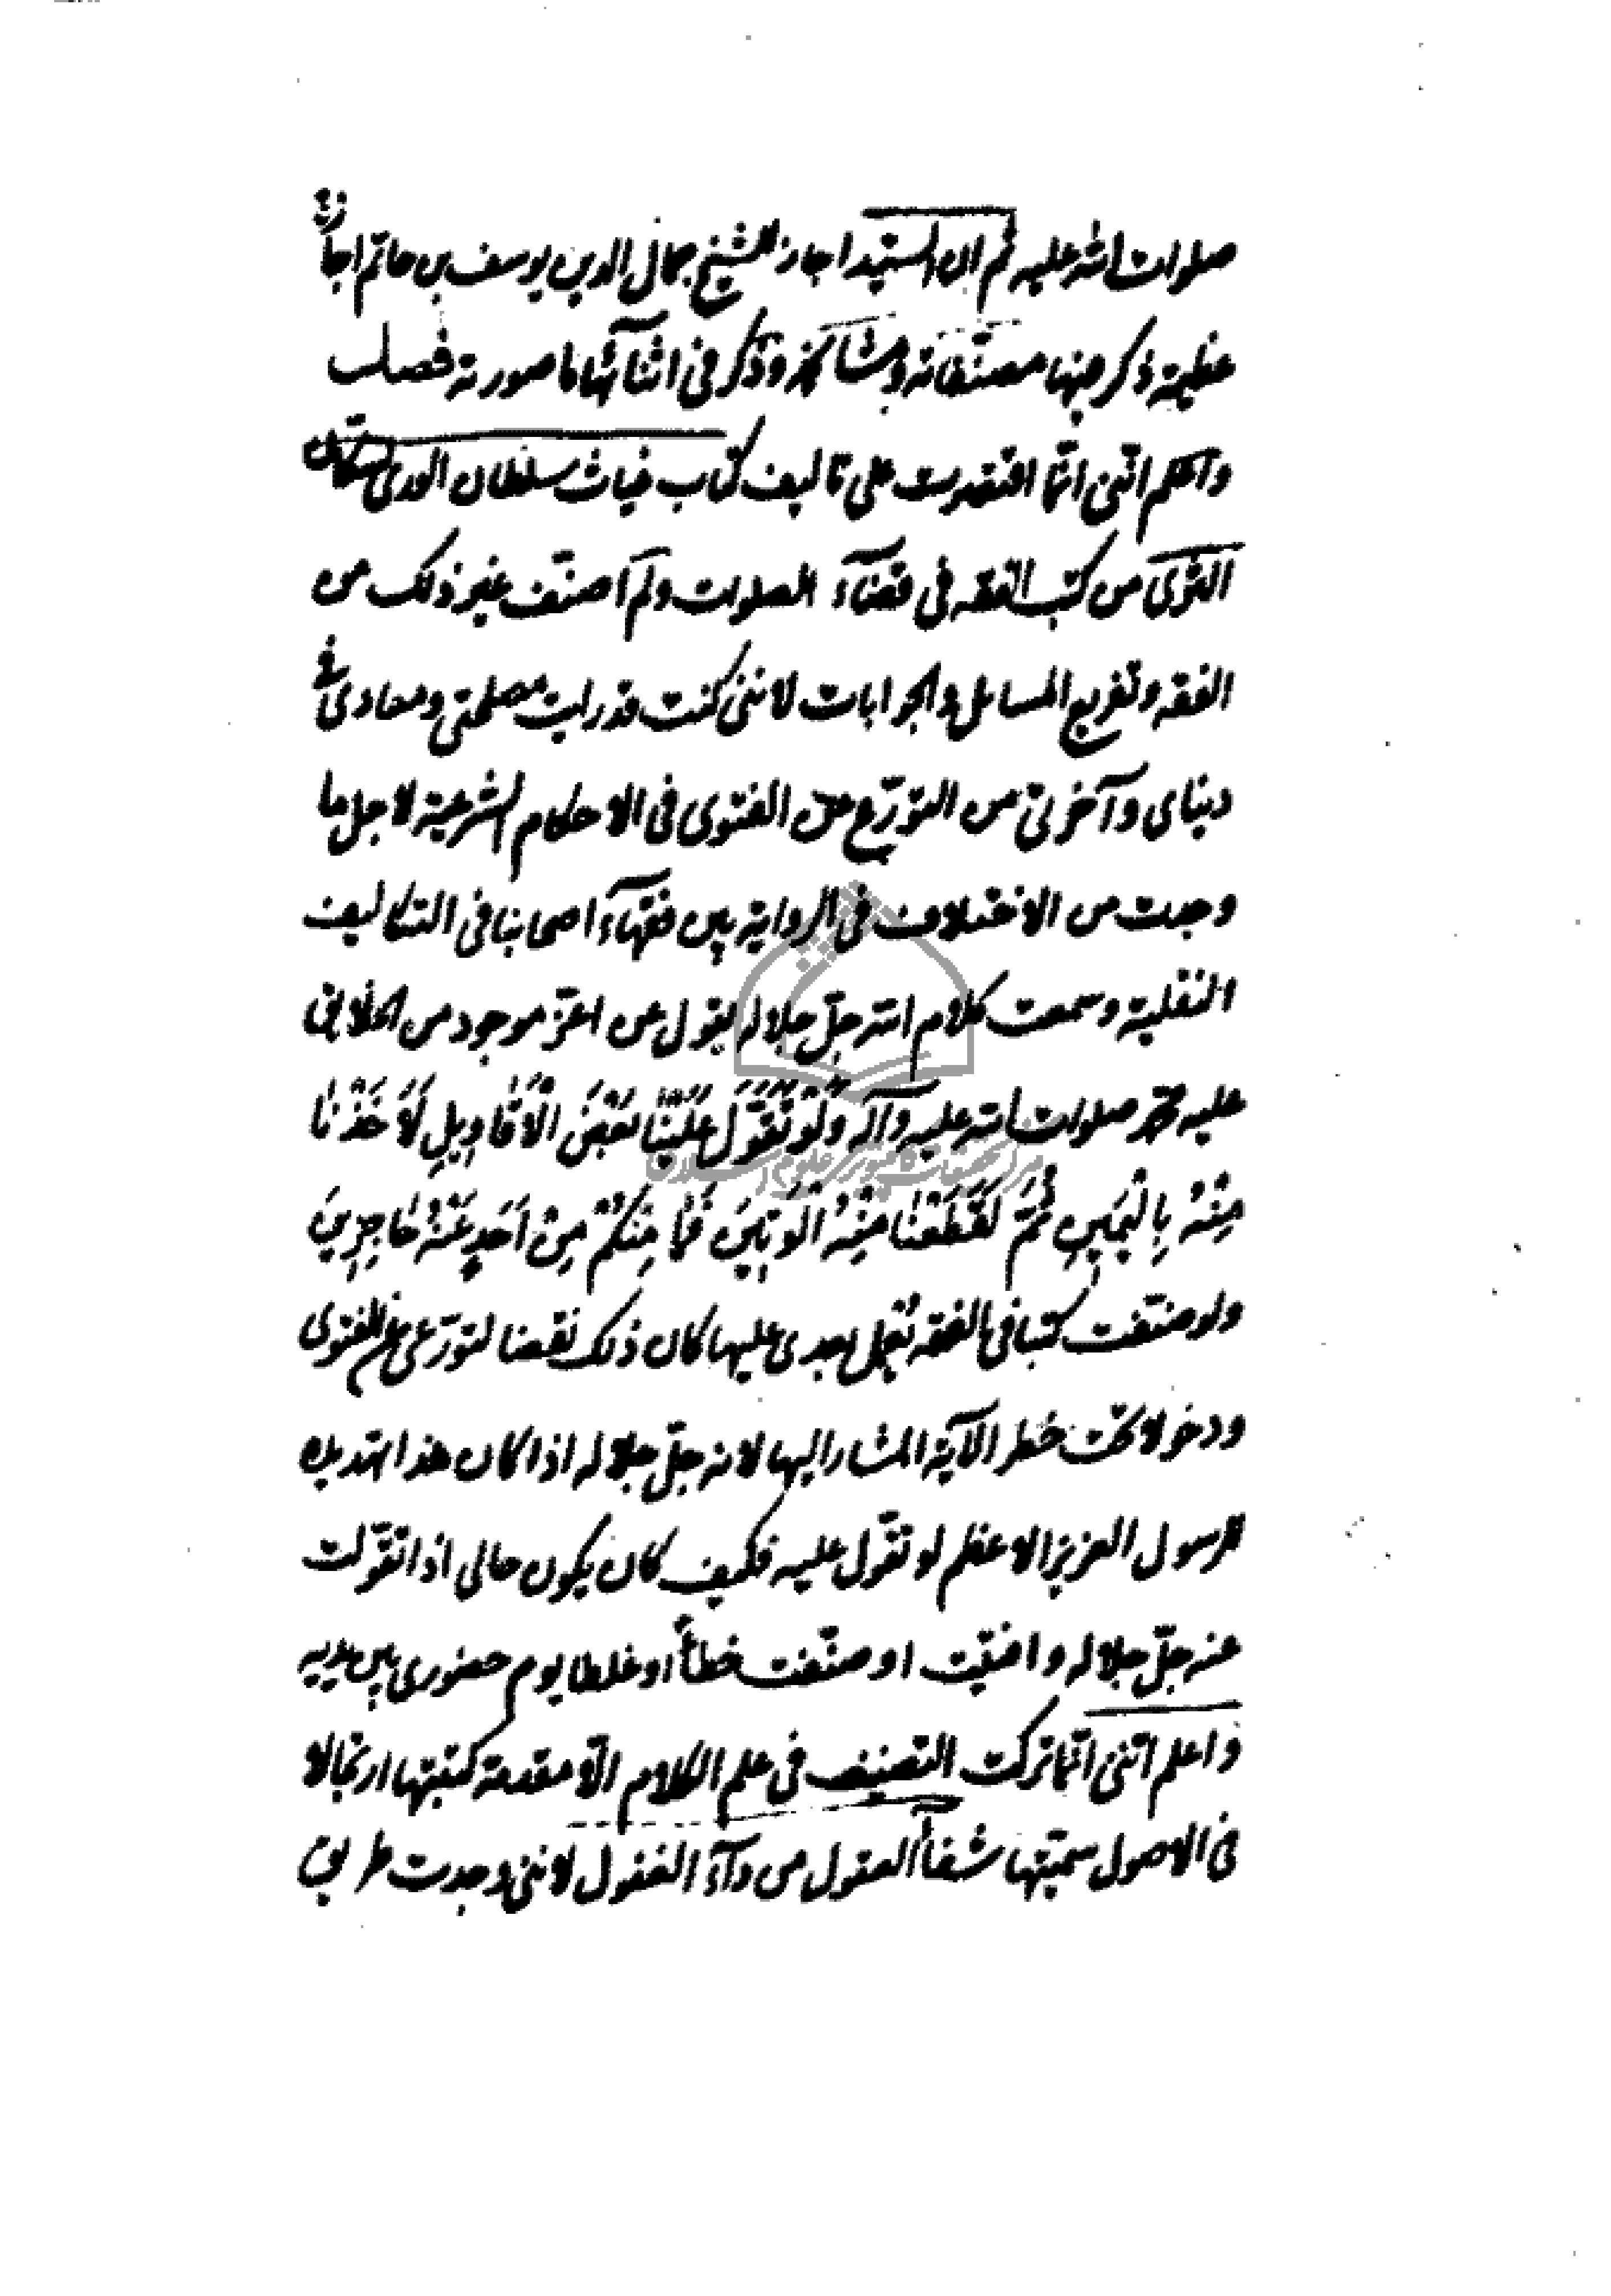 صلوات الله عليه ثم ان السيد اجاز للشيخ جمال الدين يوسف بن حاتم اجازة
عظيمة ذكر فيها مصنفاته ومشائخه وذكر في اثنائها ما صورته فصل
واعلم انني انما اقتصرت على تاليف كتاب غياث سلطان الورى لسكان
الثرى من كتب الفقه في قضآء الصلوات ولم اصنف غير ذلك من
الفقه وتفريع المسائل والجوابات لانني كنت قد رايت مصلحتي ومعادي في
دنياى وآخرتي من التورّع عن الفتوى في الاحكام الشرعية لاجل ما
وجدت من الاختلاف في الرواية بين فقهآء اصحابنا في التكاليف
النقلية وسمعت كلام الله جلّ جلاله يقول عن اعزّ موجود من الخلائق
عليه محمد صلوات الله عليه وآله وَلَوْ تَقَوَّلَ عَلَيْنَا بَعْضَ الْأَقَاوِيلِ لَأَخَذْنَا
مِنْهُ بِالْيَمِينِ ثُمَّ لَقَطَعْنَا مِنْهُ الْوَتِينَ فَمَا مِنْكُمْ مِنْ اَحَدٍ عَنْهُ حَاجِزِينَ
ولو صنّفت كتبا في الفقه يُعمل بعدى عليها كان ذلك نقضا لتورّعى عن الفتوى
ودخولا تحت خطر الآية المشار اليها لانه جلّ جلاله اذا كان هذا تهديده
للرسول العزيز الاعظم لو تقوّل عليه فكيف كان يكون حالى اذا تقوّلت
عنه جلّ جلاله وافتيت او صنّفت خطأ او غلطا يوم حضورى بين يديه
واعلم انّنى انّما تركت التصنيف في علم الكلام الّا مقدمة كتبتها ارتجالا
في الاصول سمّيتها شفآء العقول من دآء الفضول لانني وجدت طريق